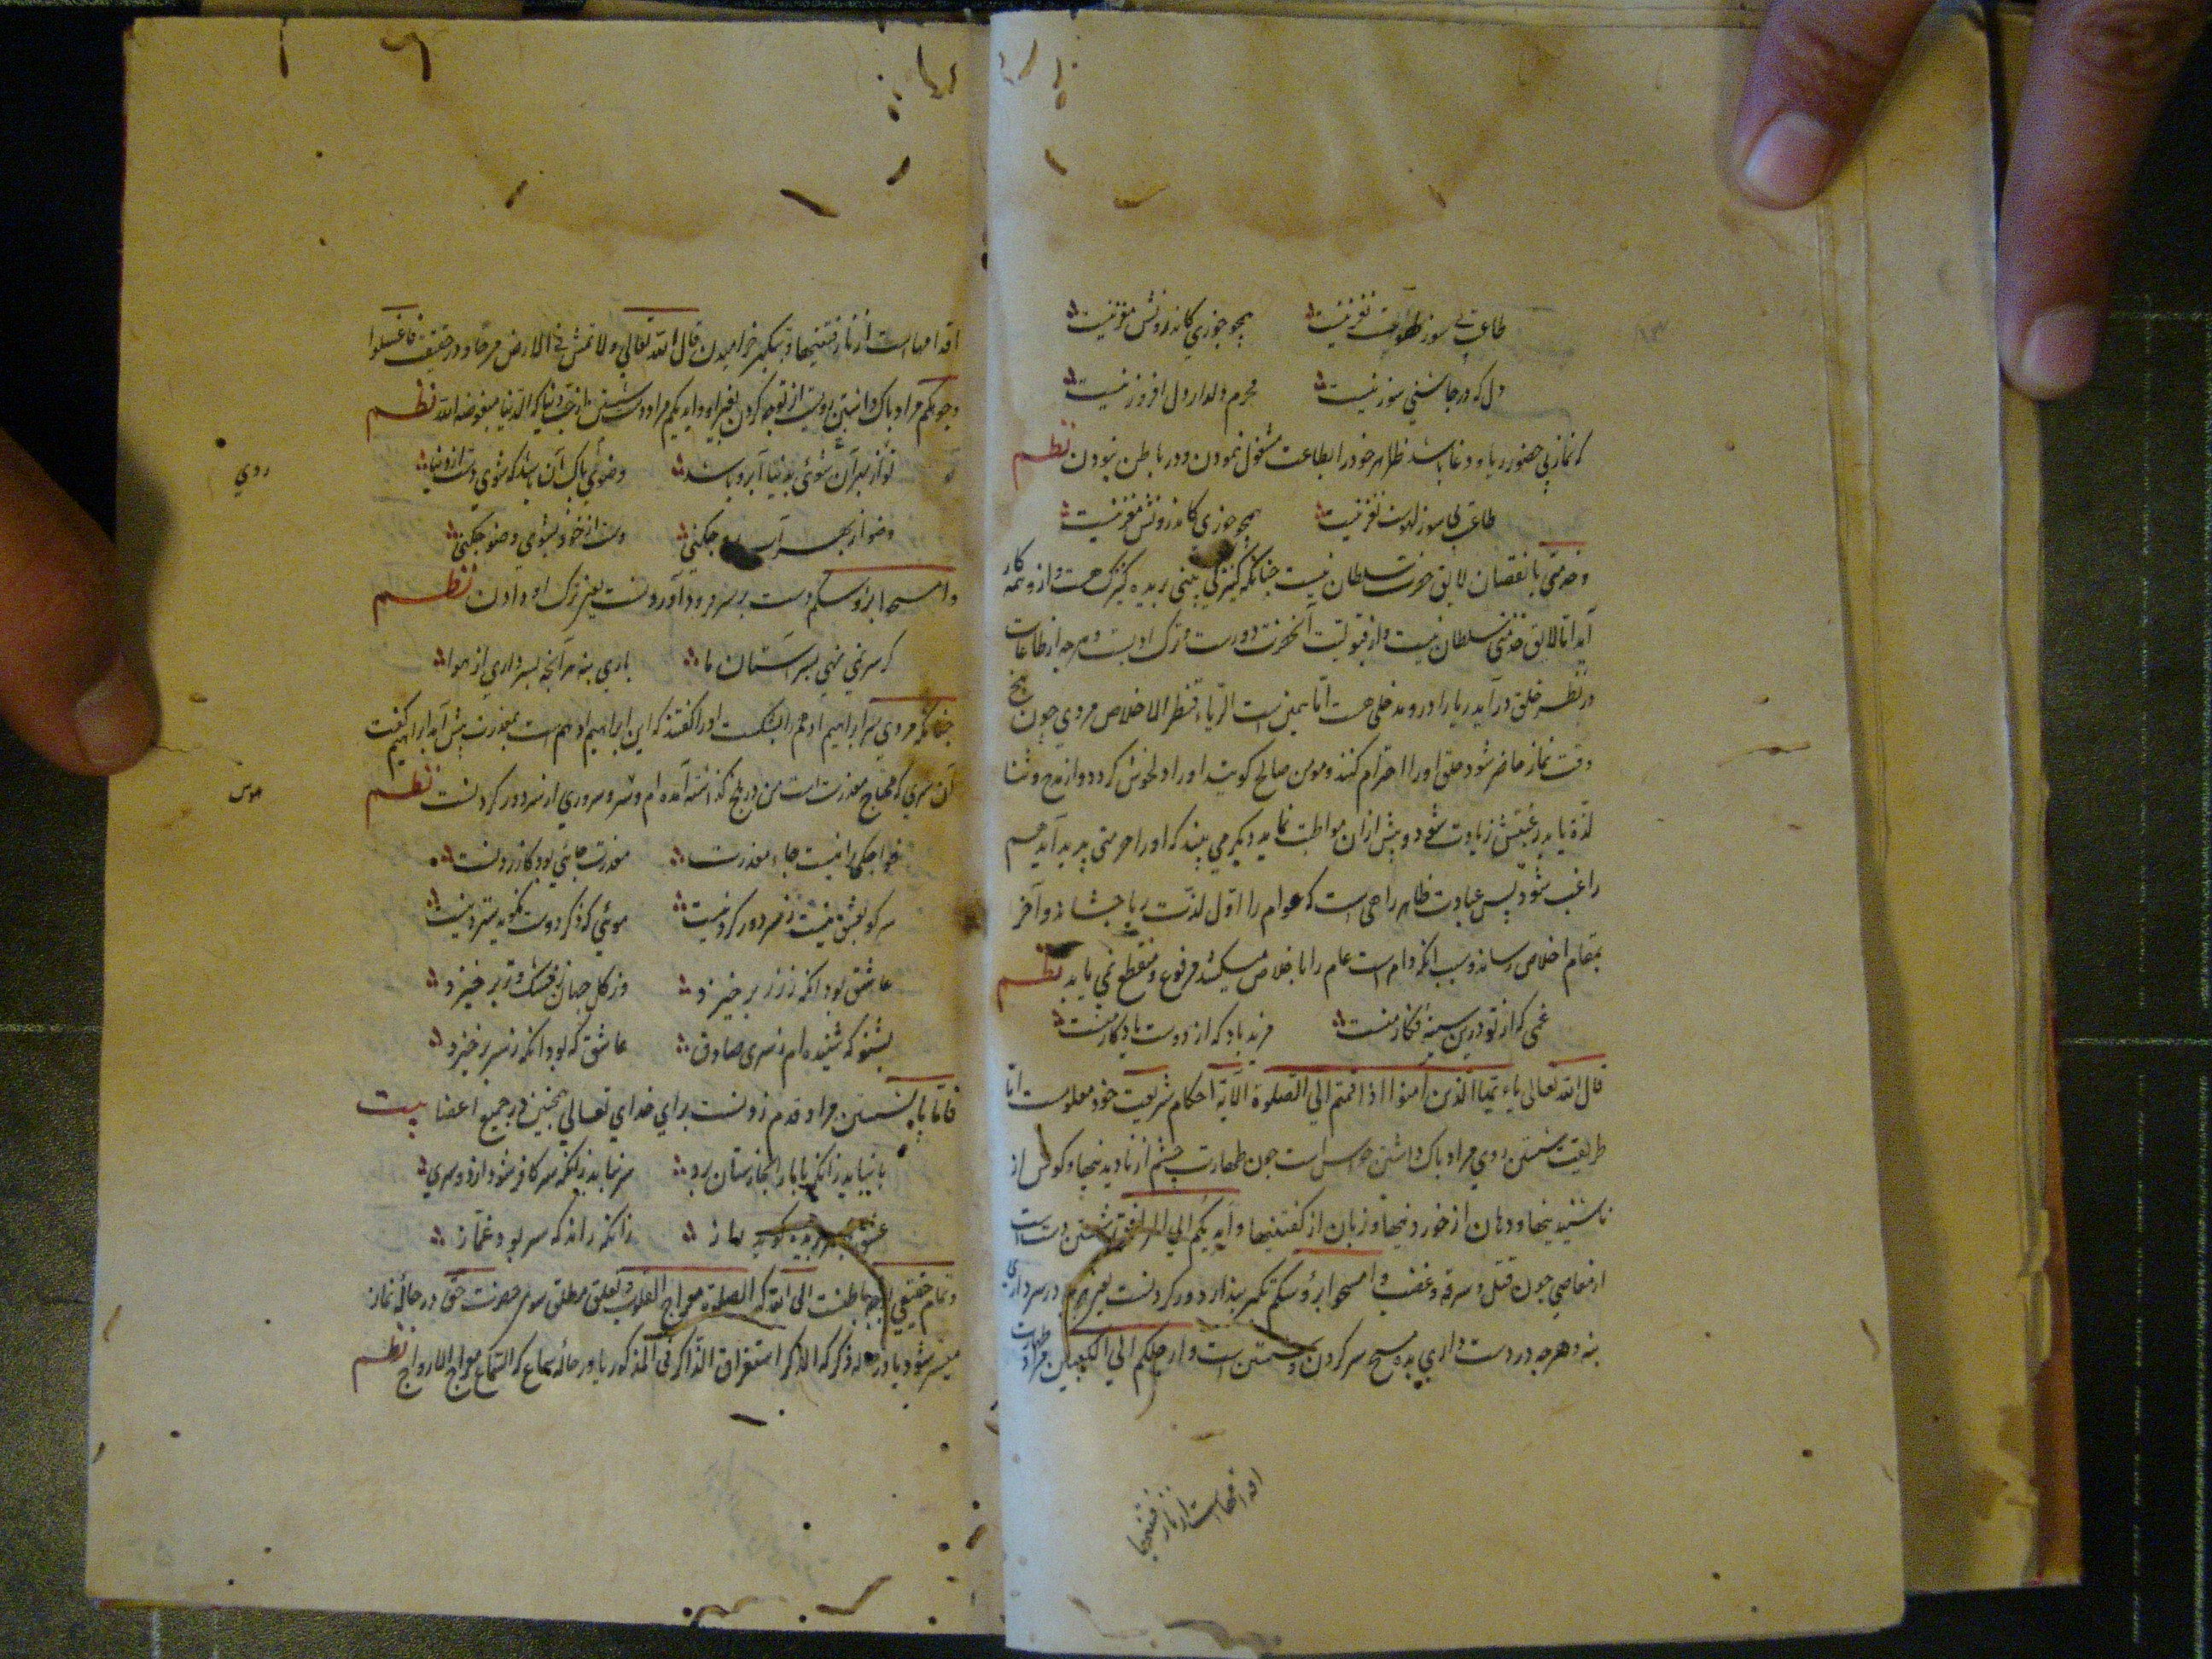 طاعت بی سوز نغز نیست همچو جوزی کاندرونش مغز نیست
دل که در جاشنی سوز نیست محرم دلدار دل افروز نیست
که نماز بی حضور ریا و دغا باشد ظاهر خود را بطاعت مشغول نمودن و در باطن نبودن نظم
طاعت بی سوز نغز نیست همچو جوزی کاندرونش مغز نیست
و خدمتی با نقصان لایق حضرت سلطان نیست جنانکه کنیزکی بینی بریده کنیزک هست و ازو همه کار
آید اما لایق خدمتی سلطان نیست و از قبولیت آنحضرت دورست و هرجه از طاعات
در نظر خلق در آید ریا را درو مدخلی هست اما الریاء قنطر الاخلاص مردی جون
وقت نماز حاضر شود خلق اورا احترام کنند و مومن صالح کویند اورا دلخوش کردد و از مدح و ثنا
لذة یابد رغبتش زیادت شود و بیش از آن مواظبت نماید دیکر می بیند که اورا حرمتی بدید آید هم
راغب شود بس عبادت ظاهر را است که عوام را اول لذت ریا جشاند و آخر
بمقام اخلاص رساند و سبب آنکه دام است عام را با خلاص میکشد مرفوع و منقطع نمی باید نظم
غمی که از تو درین سینه فکار منست مزید باد که از دوست یادکار منست
قال الله تعالی یاء یها الذین آمنوا اذا قمتم الی الصلوة الآیة احکام شریعت خود معلومست اما
طریقت شستن روی مراد باک داشتن حواس است جون طهارت جشم از نادیدنیها و کوش از
ناشنیدنیها و دهان از خوردنیها و زبان از کفتنیها و ایدیکم الی المرافق شستن دست است
از معاصی جون قتل و سرقه و غضب و امسحوا برؤسکم تکبر بندار دور کردنست یعنی هرجه در سر داری
بنه و هرجه در دست داری بده مسح سر کردن و شستن است و ارجلکم الی الکعبین مراد طهارت
اقدامها است از نارفتنیها
اقدامها است از نارفتنیها و بتکبر خرامیدن قال الله تعالی ولا تمش فی الارض مرحا و در حقیقت فاغسلوا
وجوهکم مراد باک داشتن رویست از توجه کردن بغیر او و ایدیکم مراد دست شستن از حب دنیا که الدنیا مبغوضة الله نظم
تو از بهر آن شوئی بدنیا آبرو باشد وضوئی باک آن باشد که شوئی دست از دنیا
روی
وضو از بهر جکنی دست از خود بشوی وضو جکنی
وامسحوا برؤسکم دست بر سر فرود آوردنست یعنی ترک او دادن نظم
کر سر نمی نهی بسر آستان ما باری بنه هر آنجه بسر داری از هوا
جنانکه مردی سر ابراهیم ادهم را بشکست اورا کفتند که این ابراهیم ادهم است بمعذرت بیش آمد ابراهیم کفت
آن سری که محتاج معذرت است من در بلخ کذاشته آمده ام و سر و سروری از سر دور کردنست نظم
هوس
خواجکی را نیست جاء معذرت معذرت جائی بود کازردنست
سر کو بعشق نیست ز سر دور کردنیست موئی که ذکر دوست نکوید ستردنیست
عاشق بود آنکه ز زر برخیزد وز کل جهان خشک و تر برخیزد
بشنو که شنیده ام ز سری صادق عاشق که بود آنکه ز سر برخیزد
فاما با شستن مراد قدم زدنست برای خدای تعالی همجنین در جمیع اعضا بیت
با نیاید زانکه با ما را بخارستان برد سر نباید زانکه سر کافر شود از دوسری
عشق سر بریده کوید راز زانکه داند که سر بود غماز
و تمام حقیقی توجه باطنست الی الله که الصلوة معراج القلوب و تعلق مطلق سوی حضرت حق در حالة نماز
میسر شود یا در حالة ذکر که الذکر استغراق الذاکر فی المذکور یا در حالة سماع که السماع معراج الارواح نظم